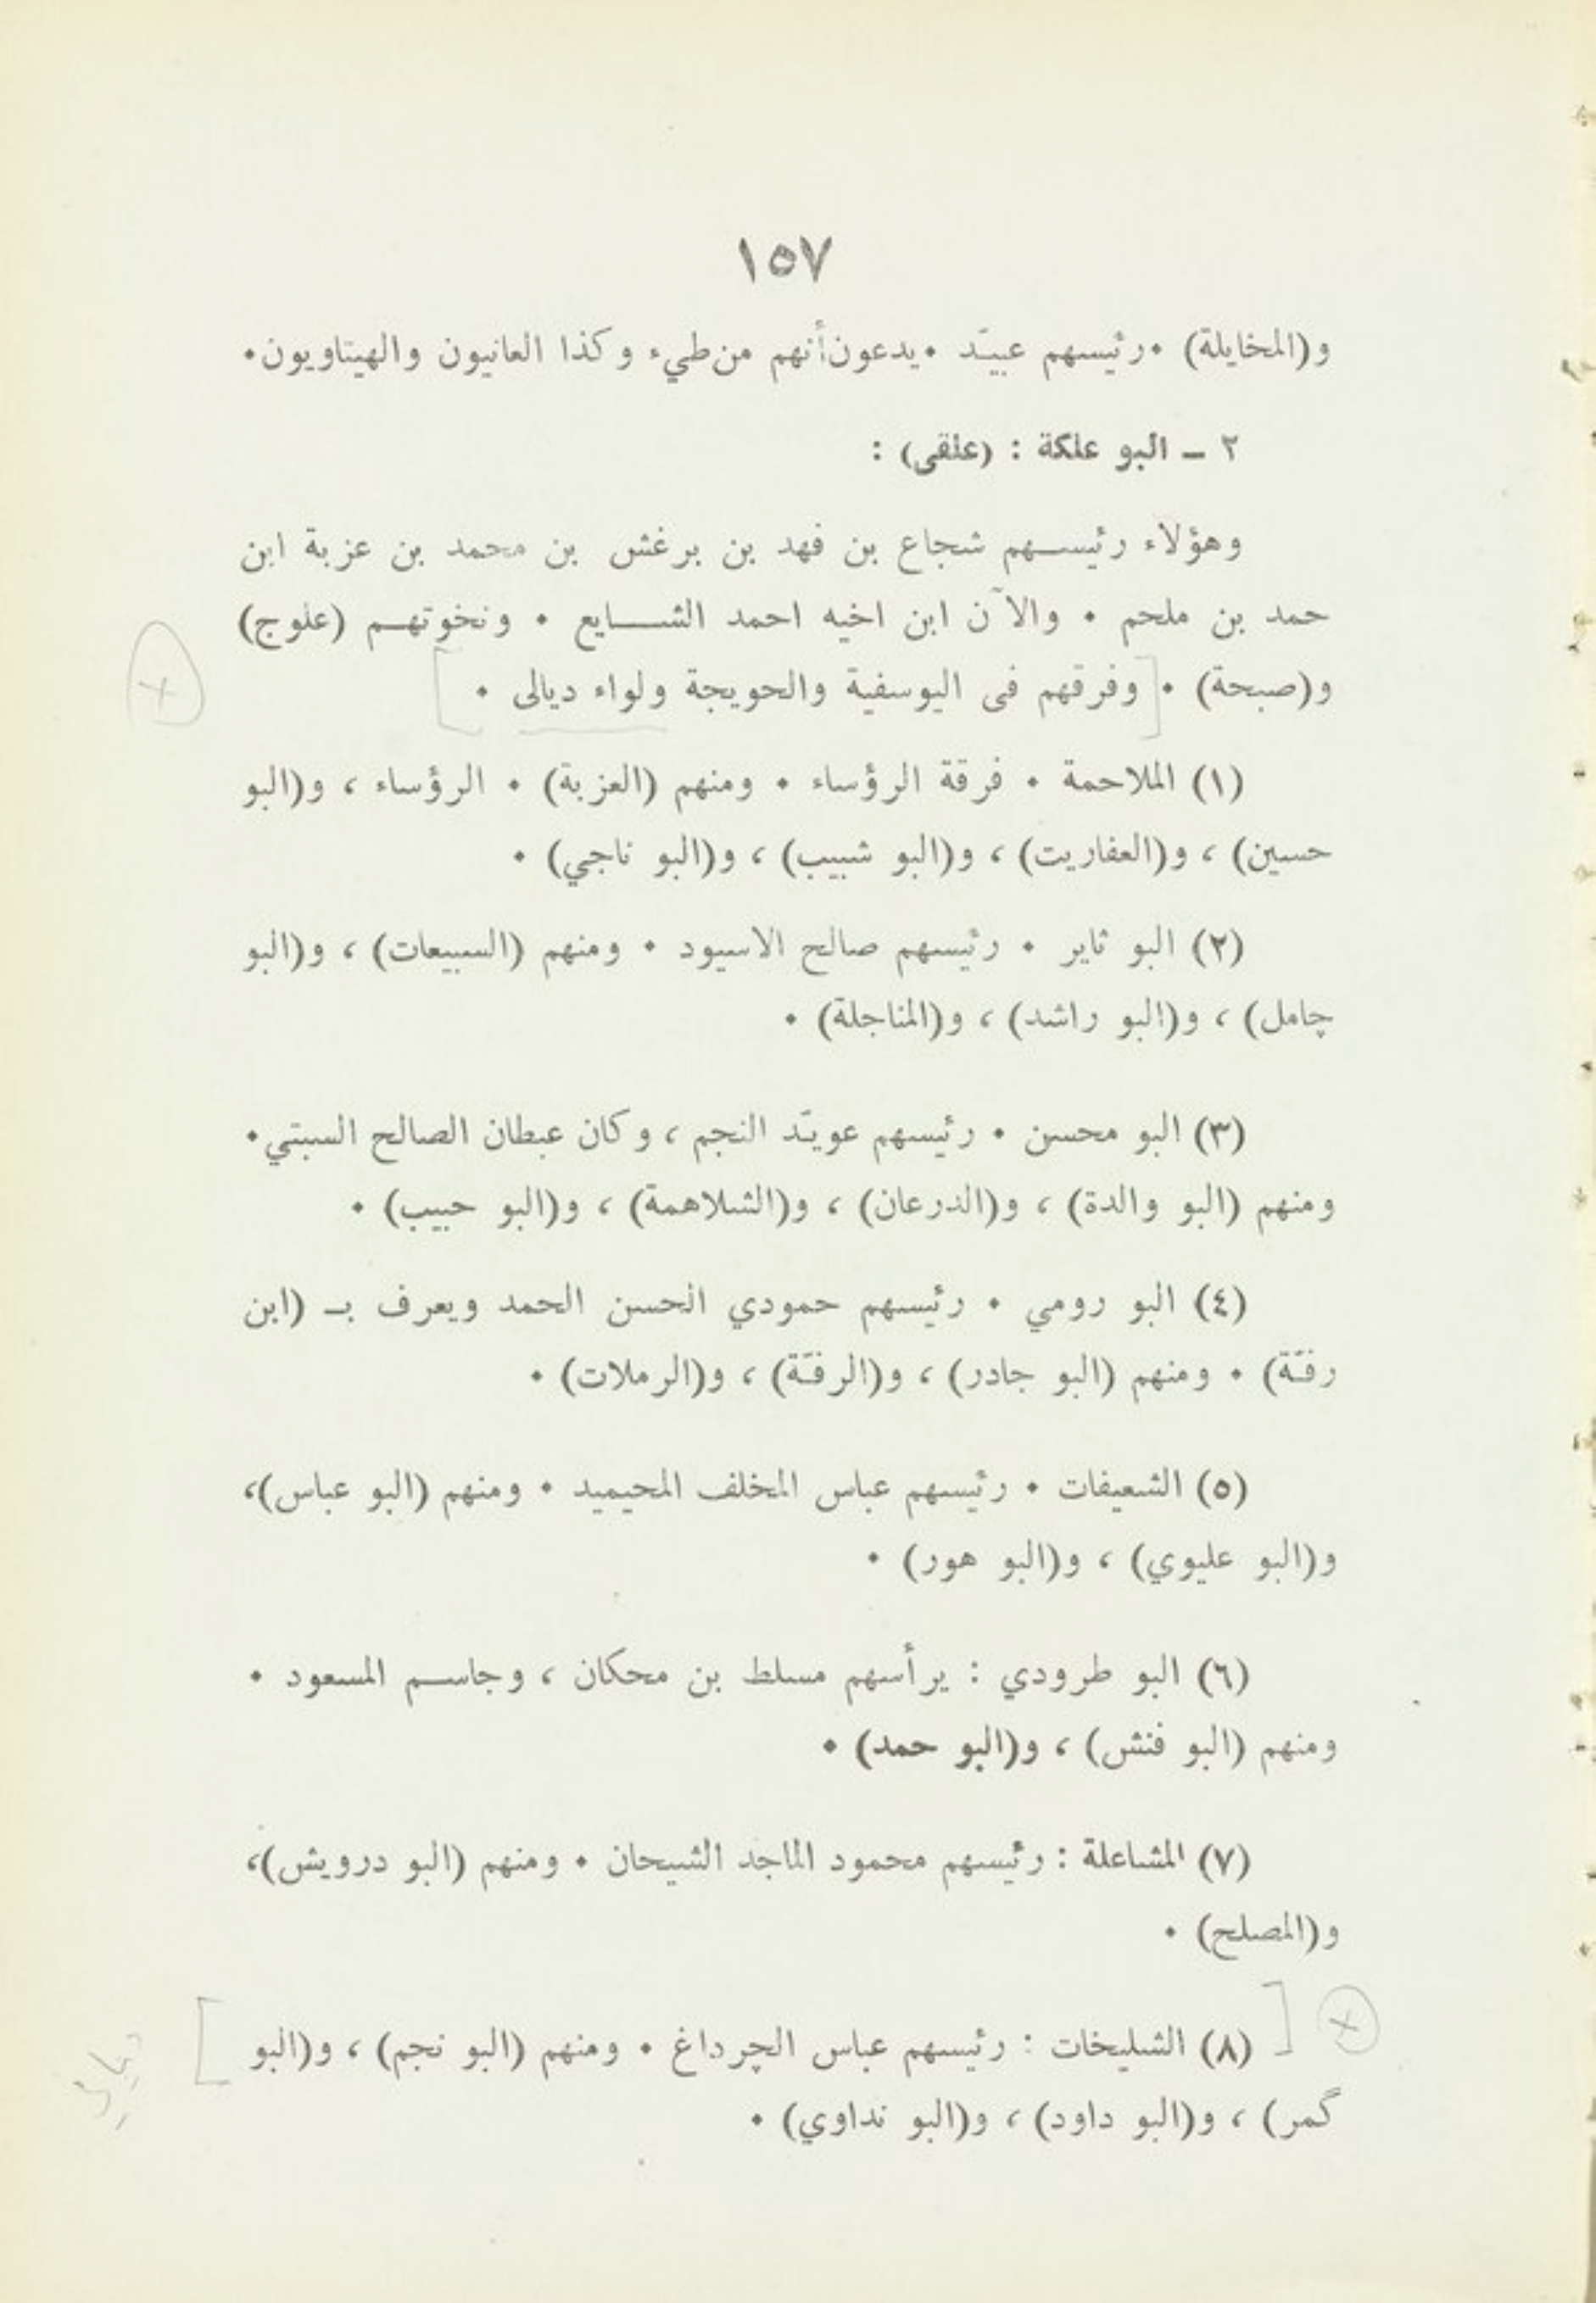 ١٥٧
و(المخايلة) ٠ رئيسهم عبيّد ٠ يدعون أنهم من طيء وكذا العانيون والهيتاويون ٠
٢ ــ البو علكة : (علقى) :
وهؤلاء رئيسهم شجاع بن فهد بن برغش بن محمد بن عزبة ابن
حمد بن ملحم ٠ والآن ابن اخيه احمد الشايع ٠ ونخوتهم (علوج)
و(صبحة) ٠ [وفرقهم فى اليوسفية والحويجة ولواء ديالى ٠ ]
(١) الملاحمة ٠ فرقة الرؤساء ٠ ومنهم (العزبة) ٠ الرؤساء ، و(البو
حسين) ، و(العفاريت) ، و(البو شبيب) ، و(البو ناجي) ٠
(٢) البو ثاير ٠ رئيسهم صالح الاسيود ٠ ومنهم (السبيعات) ، و(البو
چامل) ، و(البو راشد) ، و(المناجلة) ٠
(٣) البو محسن ٠ رئيسهم عويّد النجم ، وكان عبطان الصالح السبتي ٠
ومنهم (البو والدة) ، و(الدرعان) ، و(الشلاهمة) ، و(البو حبيب) ٠
(٤) البو رومي ٠ رئيسهم حمودي الحسن الحمد ويعرف بـ (ابن
رفّة) ٠ ومنهم (البو جادر) ، و(الرفّة) ، و(الرملات) ٠
(٥) الشعيفات ٠ رئيسهم عباس المخلف المحيميد ٠ ومنهم (البو عباس)،
و(البو عليوي) ، و(البو هور) ٠
(٦) البو طرودي : يرأسهم مسلط بن محكان ، وجاسم المسعود ٠
ومنهم (البو فنش) ، و(البو حمد) ٠
(٧) المشاعلة : رئيسهم محمود الماجد الشيحان ٠ ومنهم (البو درويش)،
و(المصلح) ٠
[(٨) الشليخات : رئيسهم عباس الچرداغ ٠ ومنهم (البو نجم) ، و(البو ]
گمر) ، و(البو داود) ، و(البو نداوي) ٠